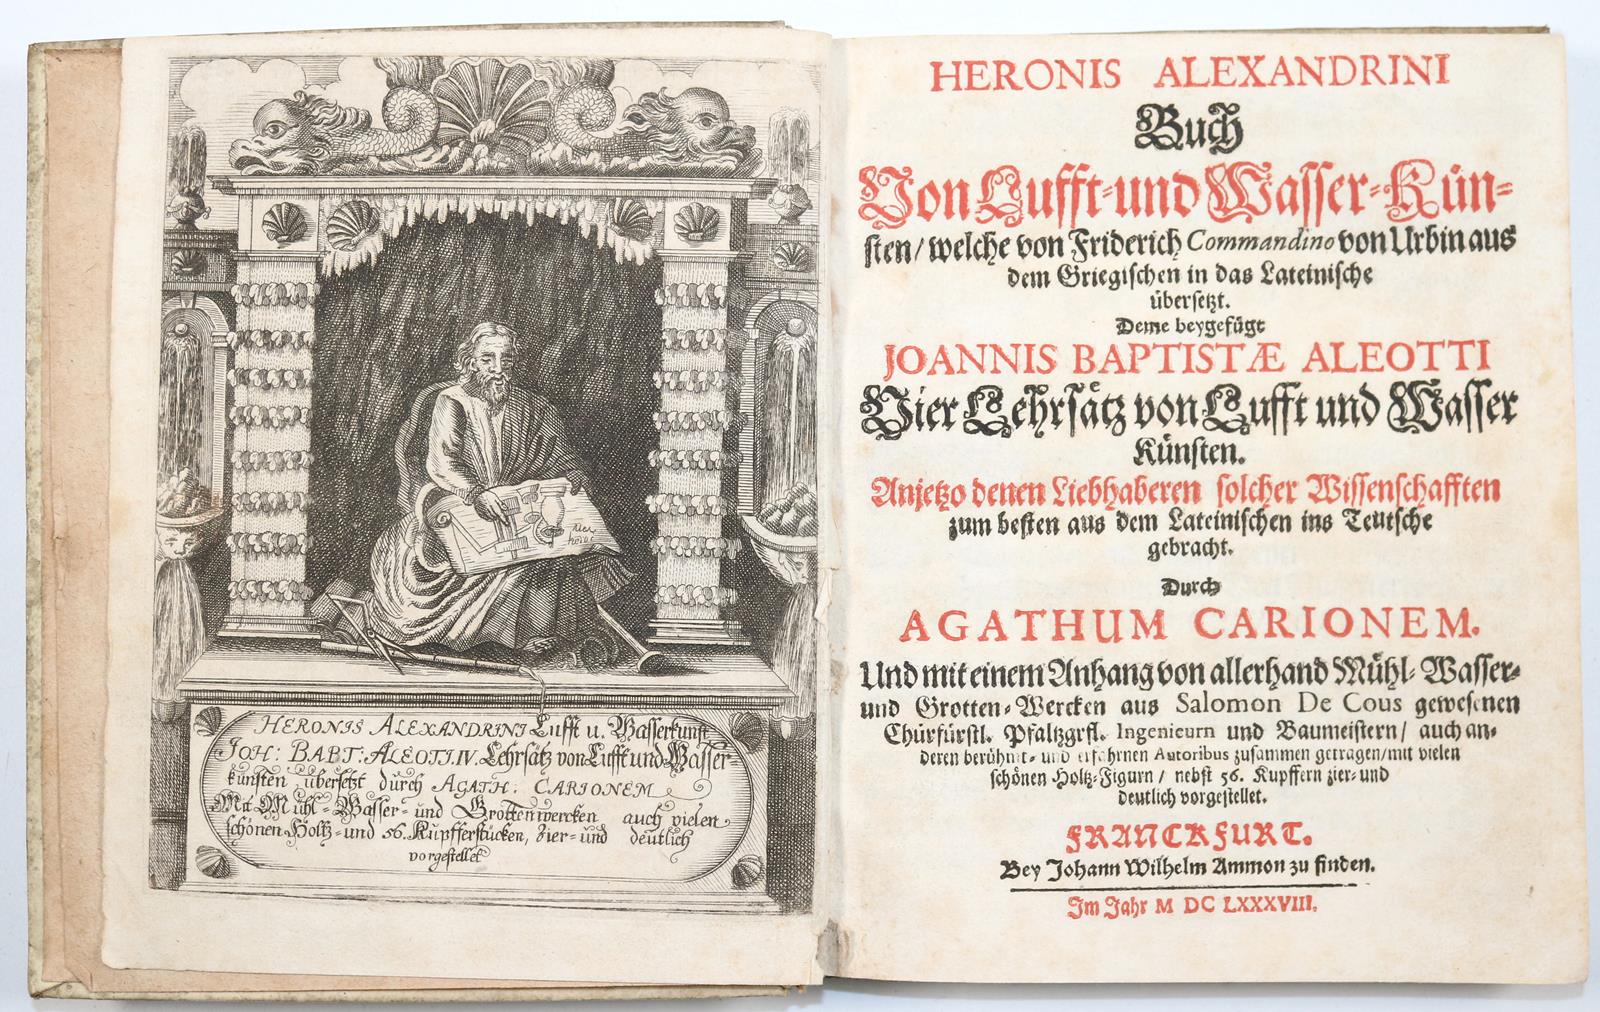 HERONIS ALEXANDRINI Lufft u. Wasserkunst
JOH: BABT: ALEOTI. IV. Lehrsätz von Lufft und Wasser
künsten übersetzt durch AGATH: CARIONEM
Mit Mühl- Wasser- und Grottenwercken auch vielen
schönen Holtz- und 56. Kupfferstücken, Zier- und deutlich
vorgestellet
HERONIS ALEXANDRINI
Buch
Von Lufft- und Wasser-Kün-
sten/ welche von Friderich Commandino von Urbin aus
dem Griegischen in das Lateinische
übersetzt.
Deme beygefügt
JOANNIS BAPTISTÆ ALEOTTI
Vier Lehrsätz von Lufft und Wasser
Künsten.
Anjetzo denen Liebhaberen solcher Wissenschafften
zum besten aus dem Lateinischen ins Teutsche
gebracht.
Durch
AGATHUM CARIONEM.
Und mit einem Anhang von allerhand Mühl- Wasser-
und Grotten-Wercken aus Salomon De Cous gewesenen
Chürfürstl. Pfaltzgrfl. Ingenieurn und Baumeistern/ auch an-
deren berühmt- und erfahrnen Autoribus zusammen getragen/ mit vielen
schönen Holtz-Figurn/ nebst 56. Kupffern zier- und
deutlich vorgestellet.
FRANCKFURT.
Bey Johann Wilhelm Ammon zu finden.
Im Jahr M DC LXXXVIII.